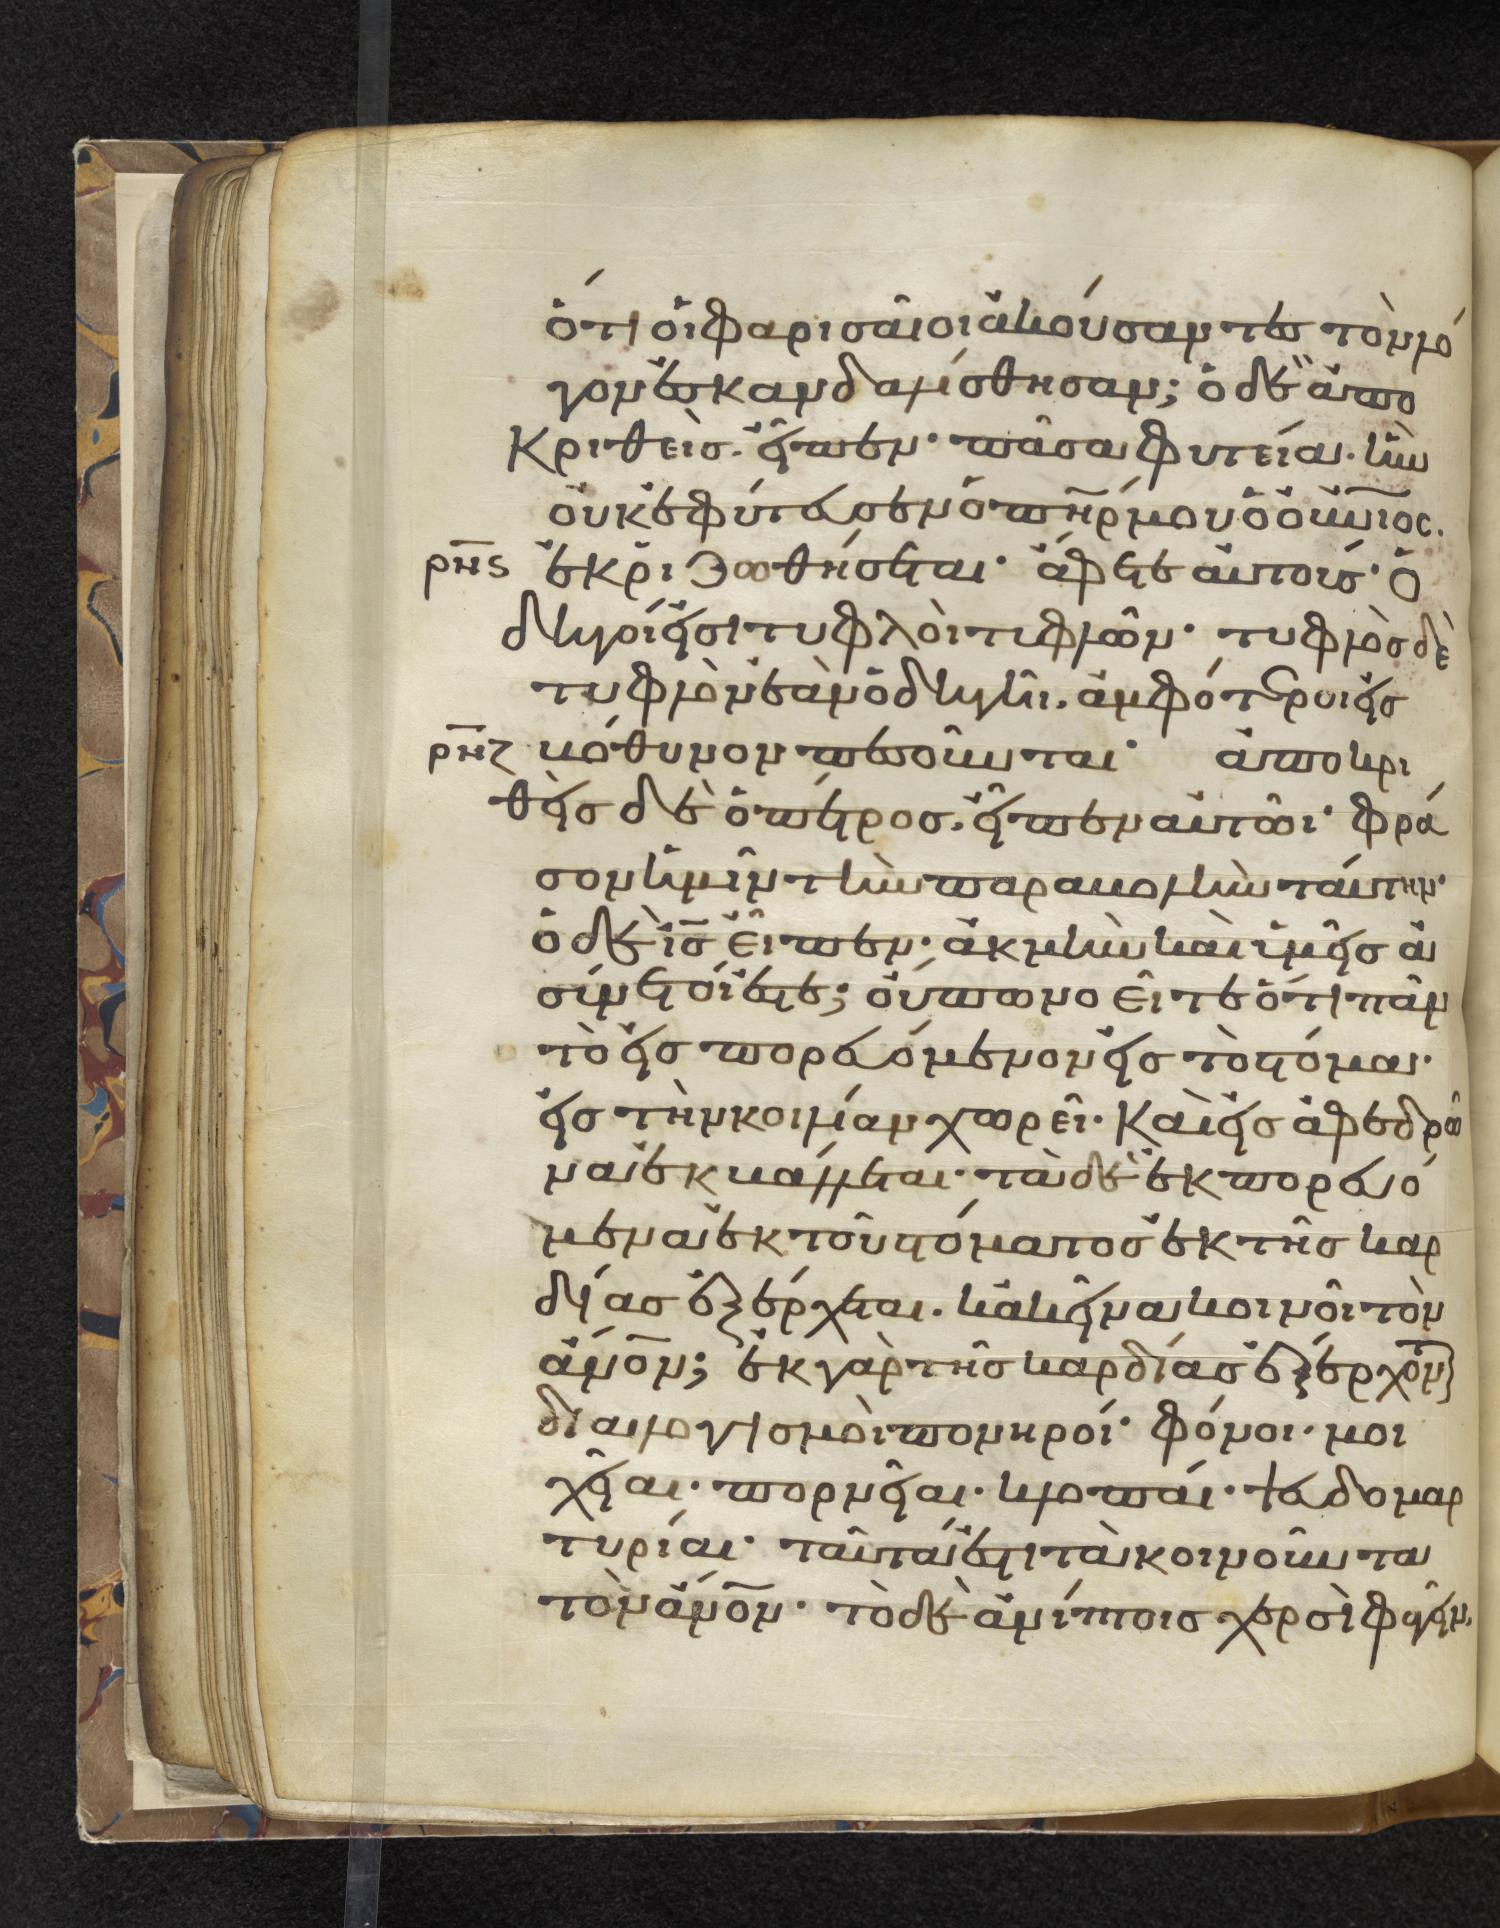 ὅτι οἱ φαρισαῖοι ἀκούσαντες τὸν λό
γον ἐσκανδαλίσθησαν; ὁ δὲ ἀπο
κριθεὶς. εἶπεν· πᾶσα φυτεία. ἣν
οὐκ ἐφύτευσεν ὁ πη̅ρ μου ὁ οὐν̅ιος.
ρν̅ς ἐκριζωθήσεται· ἄφετε αὐτούς· ὁ
δηγοί εἰσι τυφλὸι τυφλῶν· τυφλὸς δὲ
τυφλὸν ἐὰν ὁδηγῆι. ἀμφότεροι εἰς
ρν̅ζ βόθυνον πεσοῦνται· ἀποκρι
θεὶς δὲ ὁ πέτρος. εἶπεν αὐτῶι· φρά
σον ἡμῖν τὴν παραβολὴν ταύτην·
ὁ δὲ ις̅ εἶπεν· ἀκμὴν καὶ ὑμεῖς ἀ
σύνετοί ἐστε; οὔπω νοεῖτε ὅτι πᾶν
τὸ εἰσπορευόμενον εἰς τὸ στόμα.
εἰς τὴν κοιλίαν χωρεῖ. Καὶ εἰς ἀφεδρῶ
να ἐκβάλλεται· τὰ δὲ ἐκπορευό
μενα ἐκ τοῦ στόματος ἐκ τῆς καρ
δίας ἐξέρχεται. κἀκεῖνα κοινοῖ τὸν
ἄνο̅ν; ἐκ γὰρ τῆς καρδίας ἐξέρχον̅
διαλογισμοὶ πονηροί· φόνοι· μοι
χεῖαι· πορνεῖαι· κλοπαί· ψευδομαρ
τυρίαι· ταῦτά ἐστι τὰ κοινοῦντα
τὸν ἄνο̅ν· τὸ δὲ ἀνίπτοις χερσὶ φαγεῖν.